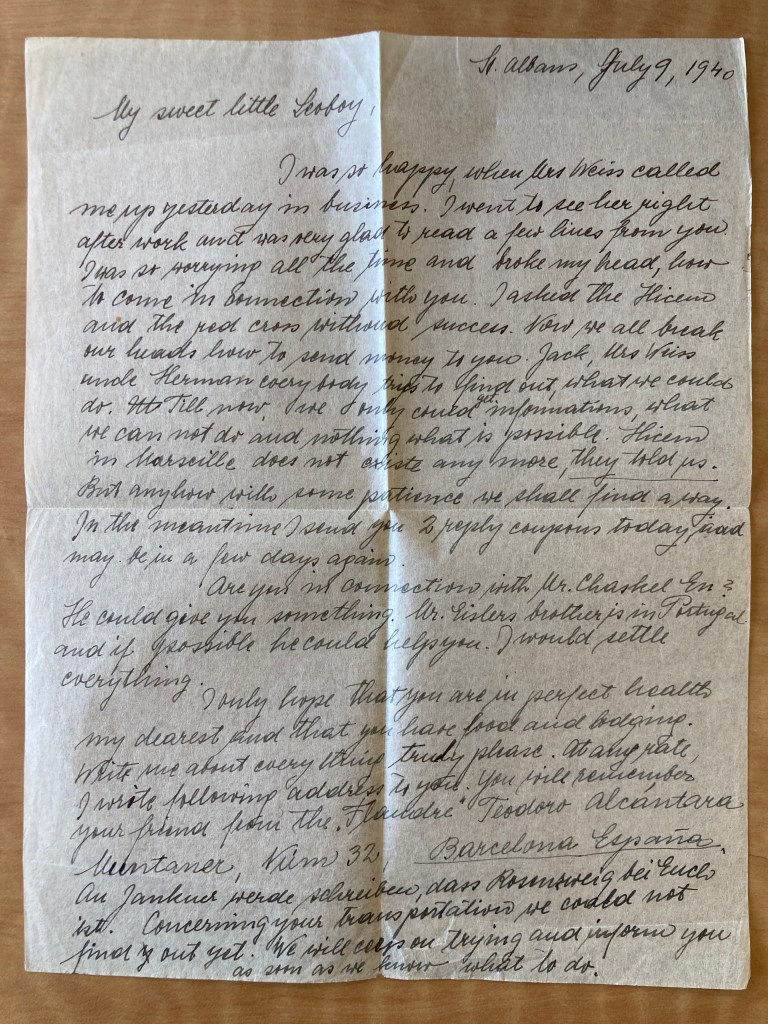 St. Albans, July 9, 1940
My sweet little Leoboy,
I was so happy, when Mrs Weiss called
me up yesterday in business. I went to see her right
after work and was very glad to read a few lines from you.
I was so worrying all the time and broke my head, how
to come in connection with you. I asked the Hicem
and the red cross without success. Now we all break
our heads how to send money to you. Jack, Mrs Weiss
uncle Herman everybody tries to find out, what we could
do. Till now, we only could get informations, what
we can not do and nothing what is possible. Hicem
in Marseille does not existe any more, they told us.
But anyhow with some patience we shall find a way.
In the meantime I send you 2 reply coupons today and
may be in a few days again.
Are you in connection with Mr. Chaskel En?
He could give you something. Mr. Eislers brother is in Portugal
and if possible he could help you. I would settle
everything.
I only hope that you are in perfect health
my dearest and that you have food and lodging.
Write me about everything truly please. At any rate,
I wrote following address to you. You will remember
your friend from the "Flandre" Teodoro Alcántara
Muntaner, Núm 32, Barcelona España.
An Jankner werde schreiben, dass Rosenzweig bei Euch
ist. Concerning your transportation we could not
find out yet. We will keep on trying and inform you
as soon as we know what to do.